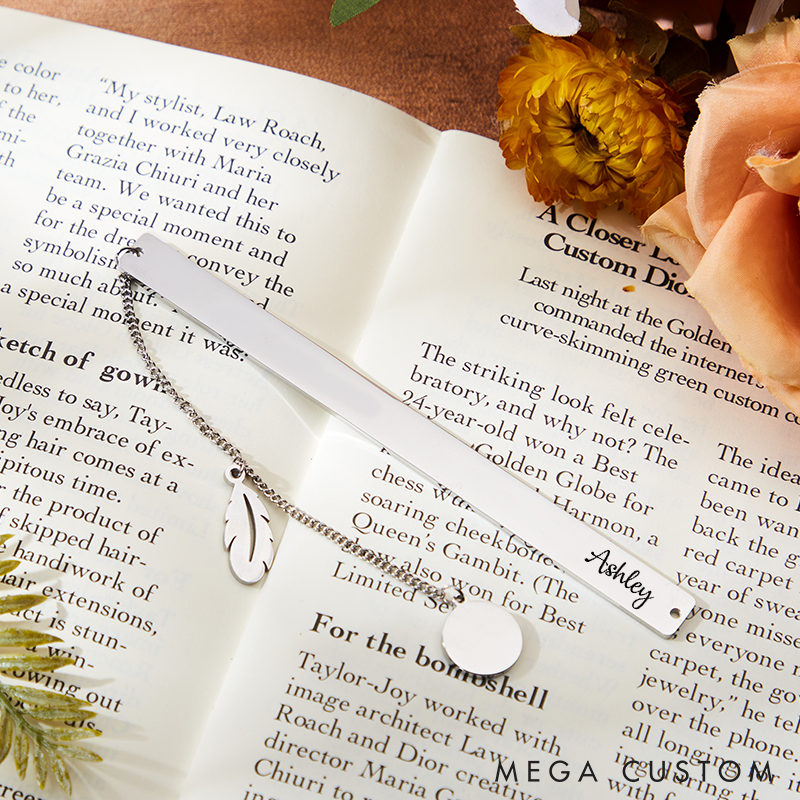 e color
to her,
f the
mi-
th
"My stylist, Law Roach,
and I worked very closely
together with Maria
Grazia Chiuri and her
team. We wanted this to
be a special moment and
for the convey the
symbolism
so much about. and
a special moment it was.
ketch of gown
edless to say, Tay-
Joy's embrace of ex-
ng hair comes at a
ipitous time.
r the product of
f skipped hair-
e handiwork of
air extensions,
ct is stun-
a win-
owing out
A Closer
Custom Dio
Last night at the Golden
commanded the internet's
curve-skimming green custom
The striking look felt cele-
bratory, and why not? The
24-year-old won a Best
Golden Globe for
chess Harmon, a
soaring cheekbone
Queen's Gambit. (The
also won for Best
Limited
For the bombshell
Taylor-Joy worked with
image architect Law
Roach and Dior creative
director Maria
Chiuri to
The idea
came to
been wan
back the
red carpet
year of swea
one misse
everyone
carpet, the go
jewelry," he tel
over the phone.
all longing for
Ashley
MEGA CUSTOM